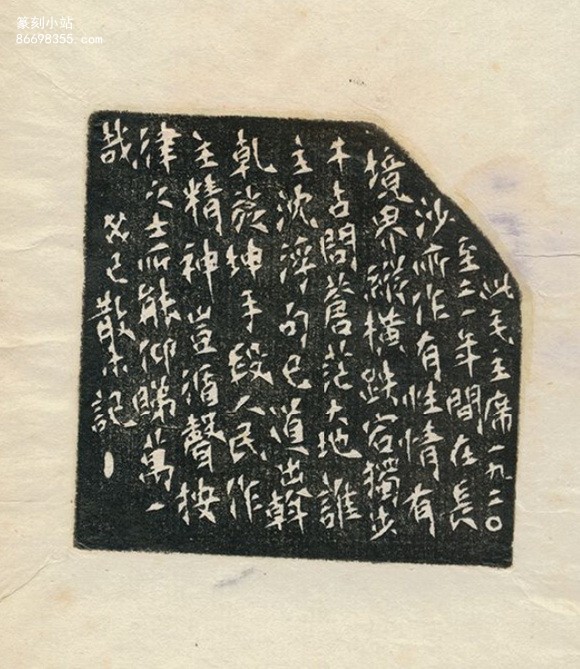 篆刻小站
86698355.com
此毛主席一九二〇
至二一年間在長
沙所作有性情有
境界縱橫跌宕獨步
千古問蒼茫大地誰
主沈浮句已道出斡
乾旋坤手段人民作
主精神豈循聲按
律之士所能仰睇萬一
哉 癸巳散木記